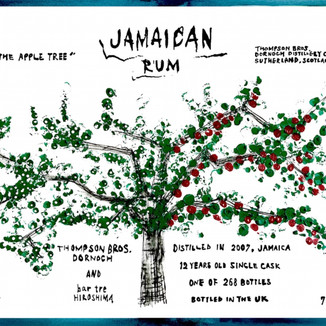 THE APPLE TREE"
JAMAICAN
RUM
THOMPSON BROS.
DORNOCH DISTILLERY C
SUTHERLAND, SCOTLA
THOMPSON BROS.
DORNOCH
AND
bar tre
HIROSHIMA
DISTILLED IN 2007, JAMAICA
12 YEARS OLD SINGLE CASK
ONE OF 268 BOTTLES
BOTTLED IN THE UK
7